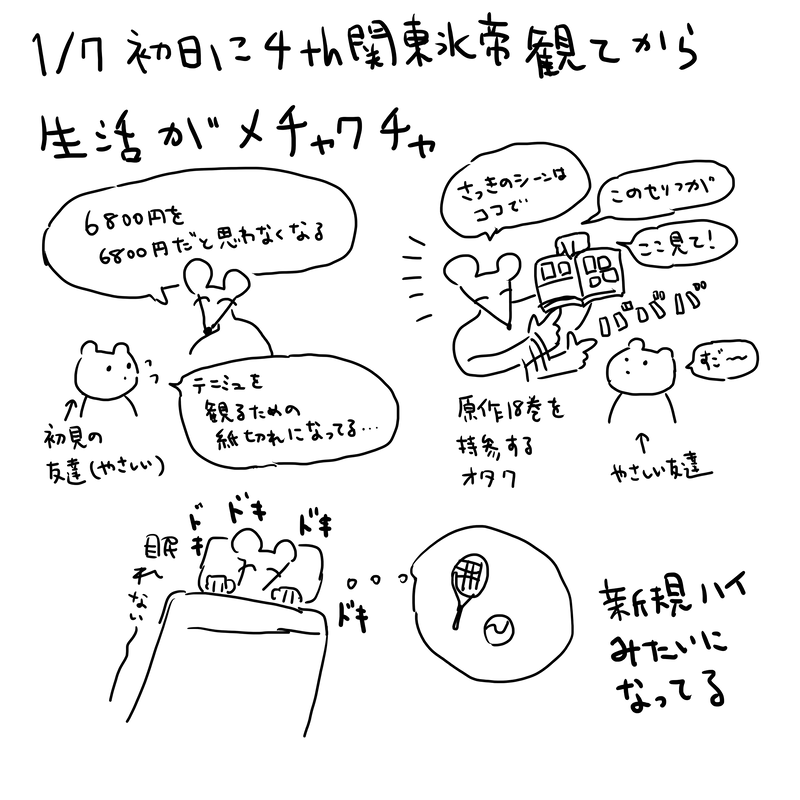 1/7 初日に4th関東氷帝観てから
生活がメチャクチャ
6800円を
6800円だと思わなくなる
テニミュを
観るための
紙切れになってる…
初見の
友達(やさしい)
さっきのシーンは
ココで
このセリフが
ここ見て!
バババババ
すご〜
原作18巻を
持参する
オタク
やさしい友達
ドキ
ドキ
ドキ
ドキ
眠れない
新規ハイ
みたいに
なってる